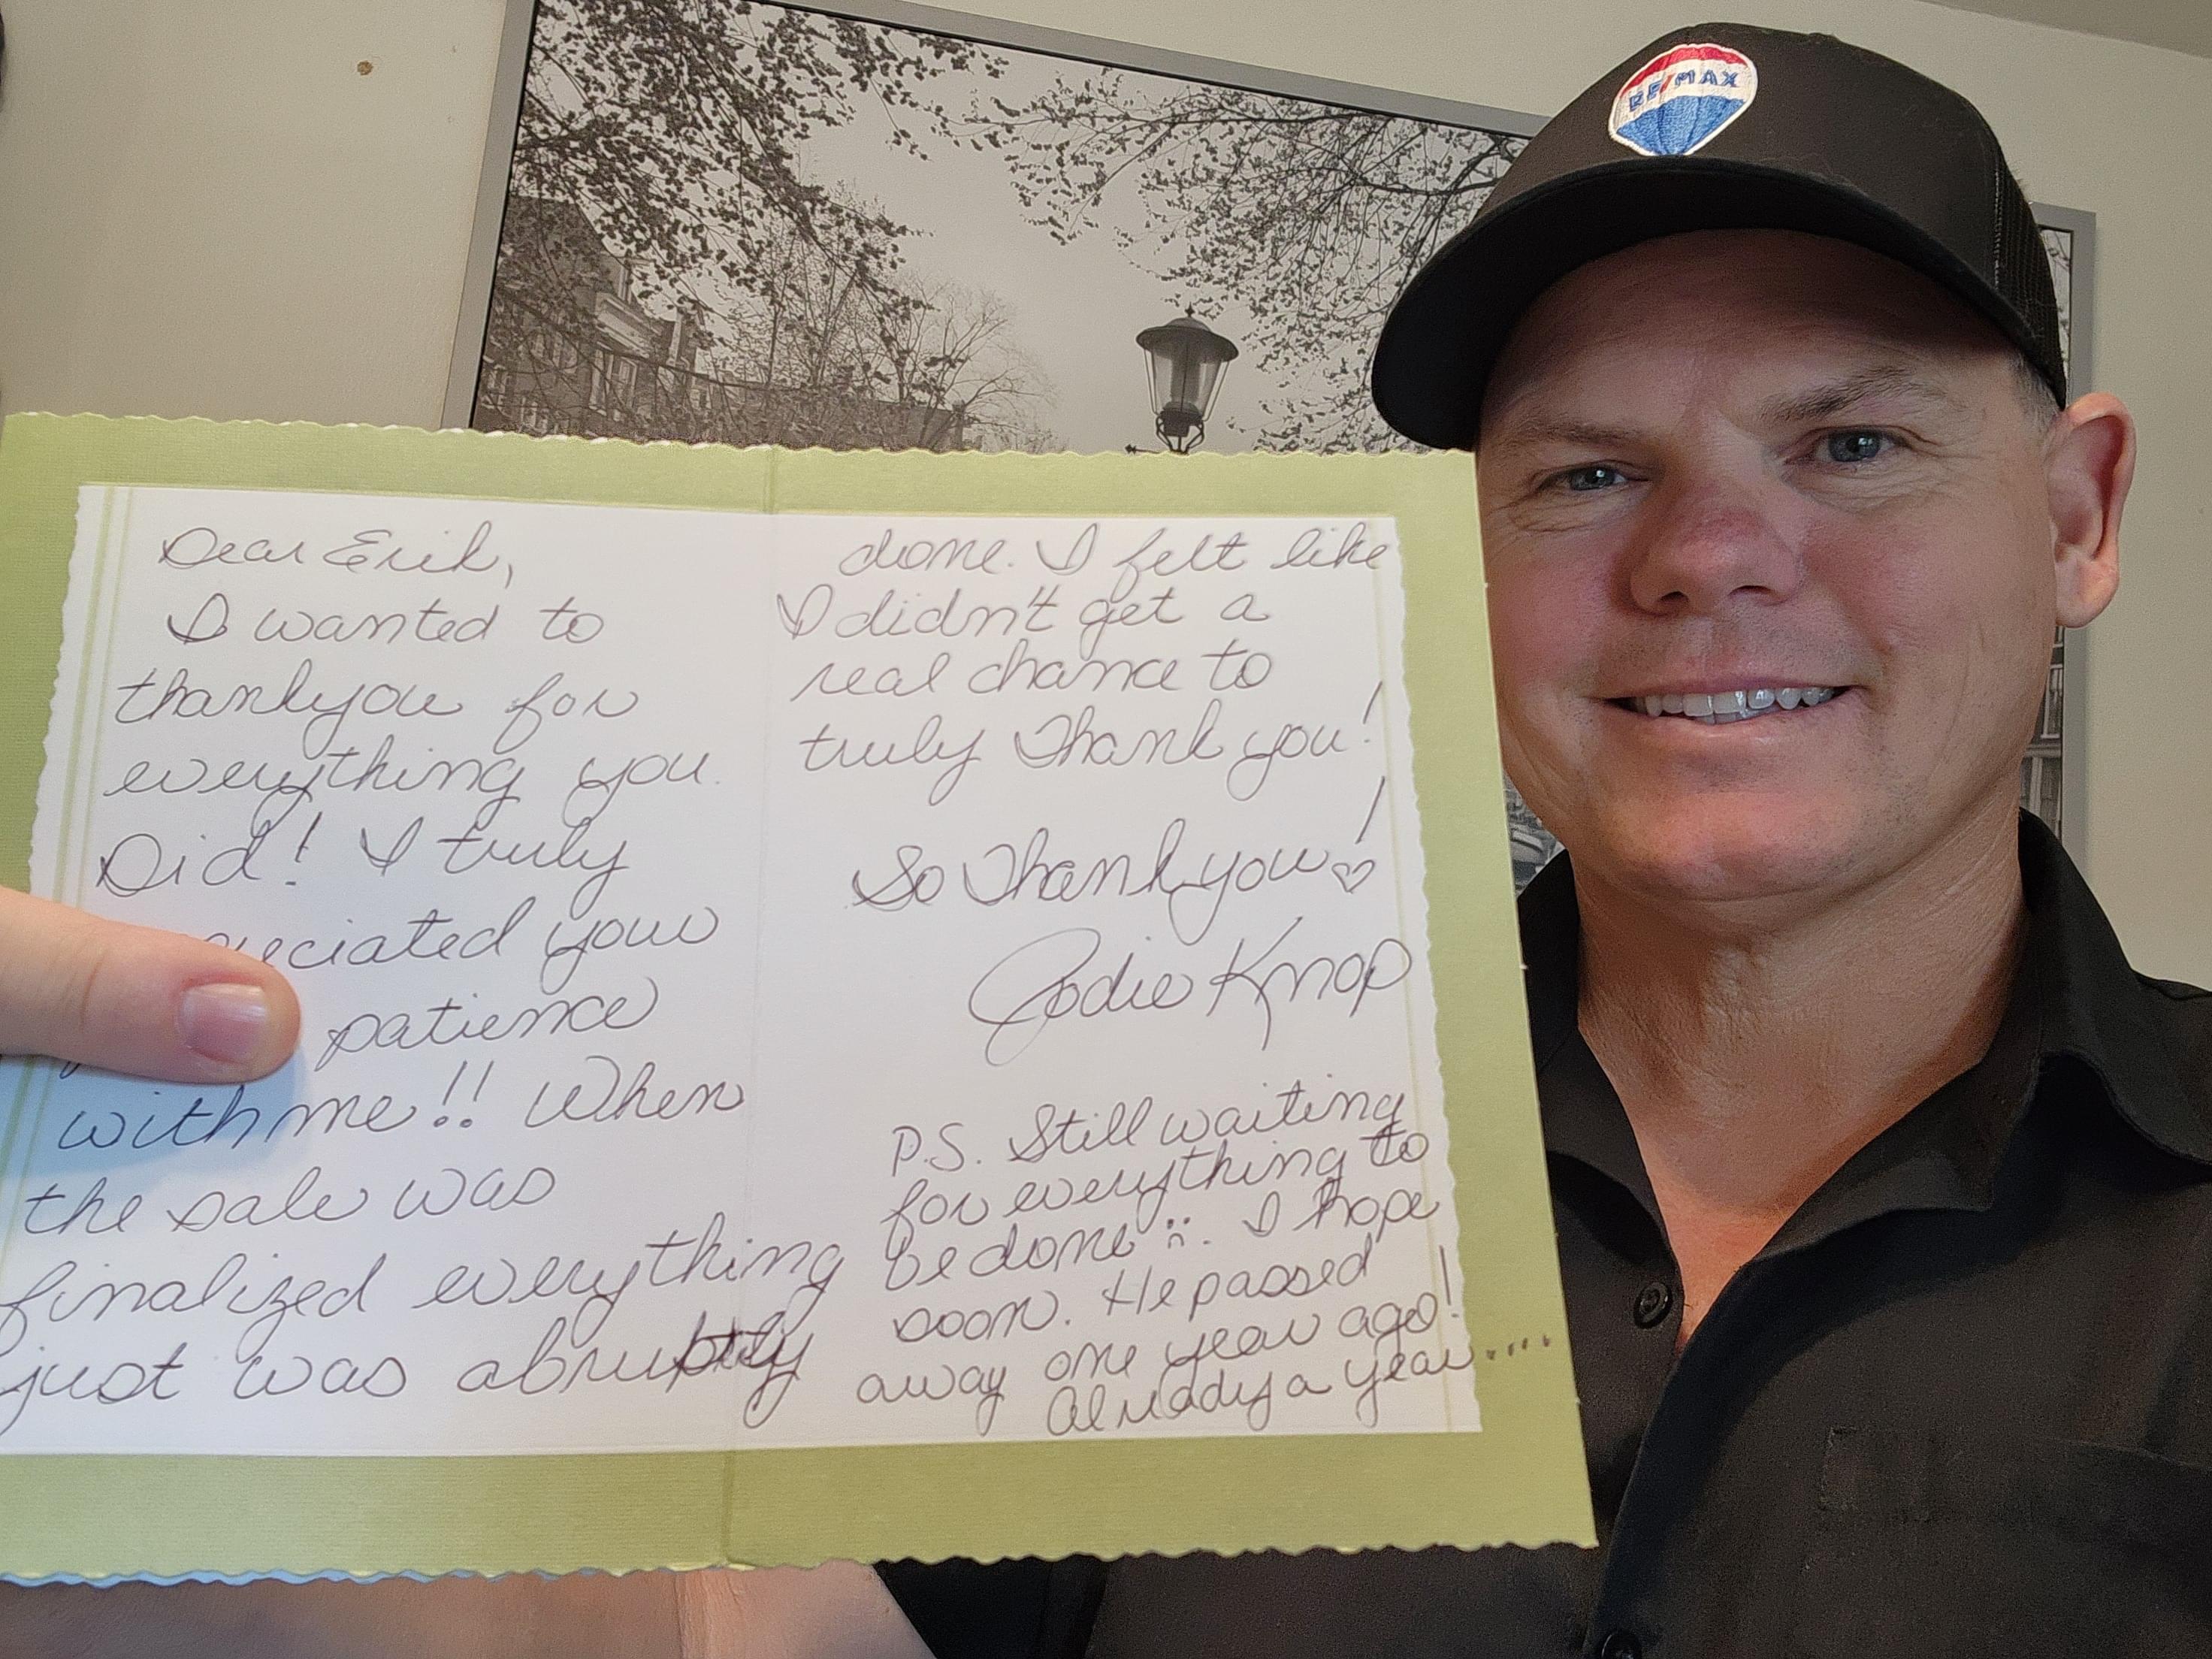 RE/MAX
Dear Erik,
I wanted to
thankyou for
everything you
Did! I truly
eciated your
patience
with me!! When
the sale was
finalized everything
just was abruptly
done. I felt like
I didn't get a
real chance to
truly Thank you!
So Thank you! ♡
Jodie Knop
P.S. Still waiting
for everything to
be done :(. I hope
soon. He passed
away one year ago!
Already a year....